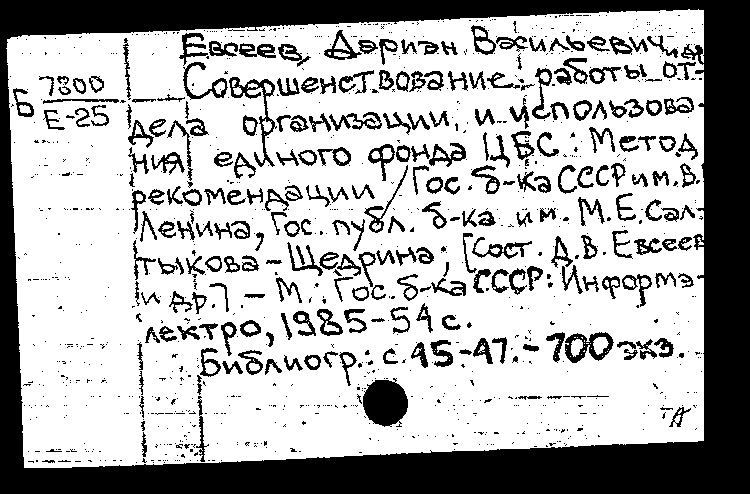 Евсеев, Дариан Васильевич и др
Б 7800
Е-25
Совершенствование работы от-
дела организации и использова-
ния единого фонда ЦБС: Метод
рекомендации / Гос. б-ка СССР им. В.
Ленина, Гос. публ. б-ка им. М.Е. Сал-
тыкова-Щедрина; [Сост. Д.В. Евсеев
и др.] — М.: Гос. б-ка СССР: Информэ-
лектро, 1985-54 с.
Библиогр.: с. 45-47. - 700 экз.